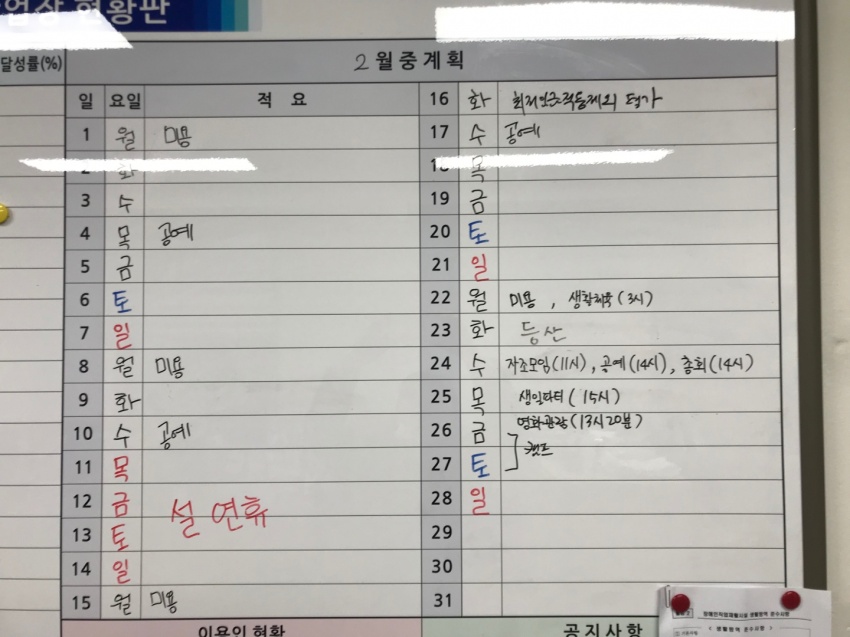 현황판
달성률(%)
2월중계획
일 요일 적 요
1 월 미용
2 화
3 수
4 목 공예
5 금
6 토
7 일
8 월 미용
9 화
10 수 공예
11 목
12 금 설 연휴
13 토
14 일
15 월 미용
16 화 평가
17 수 공예
18 목
19 금
20 토
21 일
22 월 미용 , 생활체육(3시)
23 화 등산
24 수 자조모임(11시), 공예(14시), 총회(14시)
25 목 생일파티(15시)
26 금 영화관람(13시20분)
27 토 캠프
28 일
29
30
31
이용인 현황
공지사항